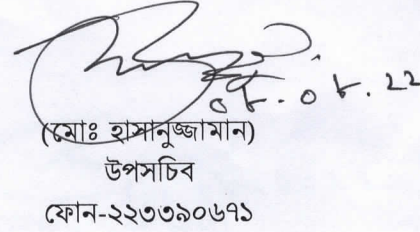 ০৮.০৮.২২
(মোঃ হাসানুজ্জামান)
উপসচিব
ফোন-২২৩৩৯০৬৭১